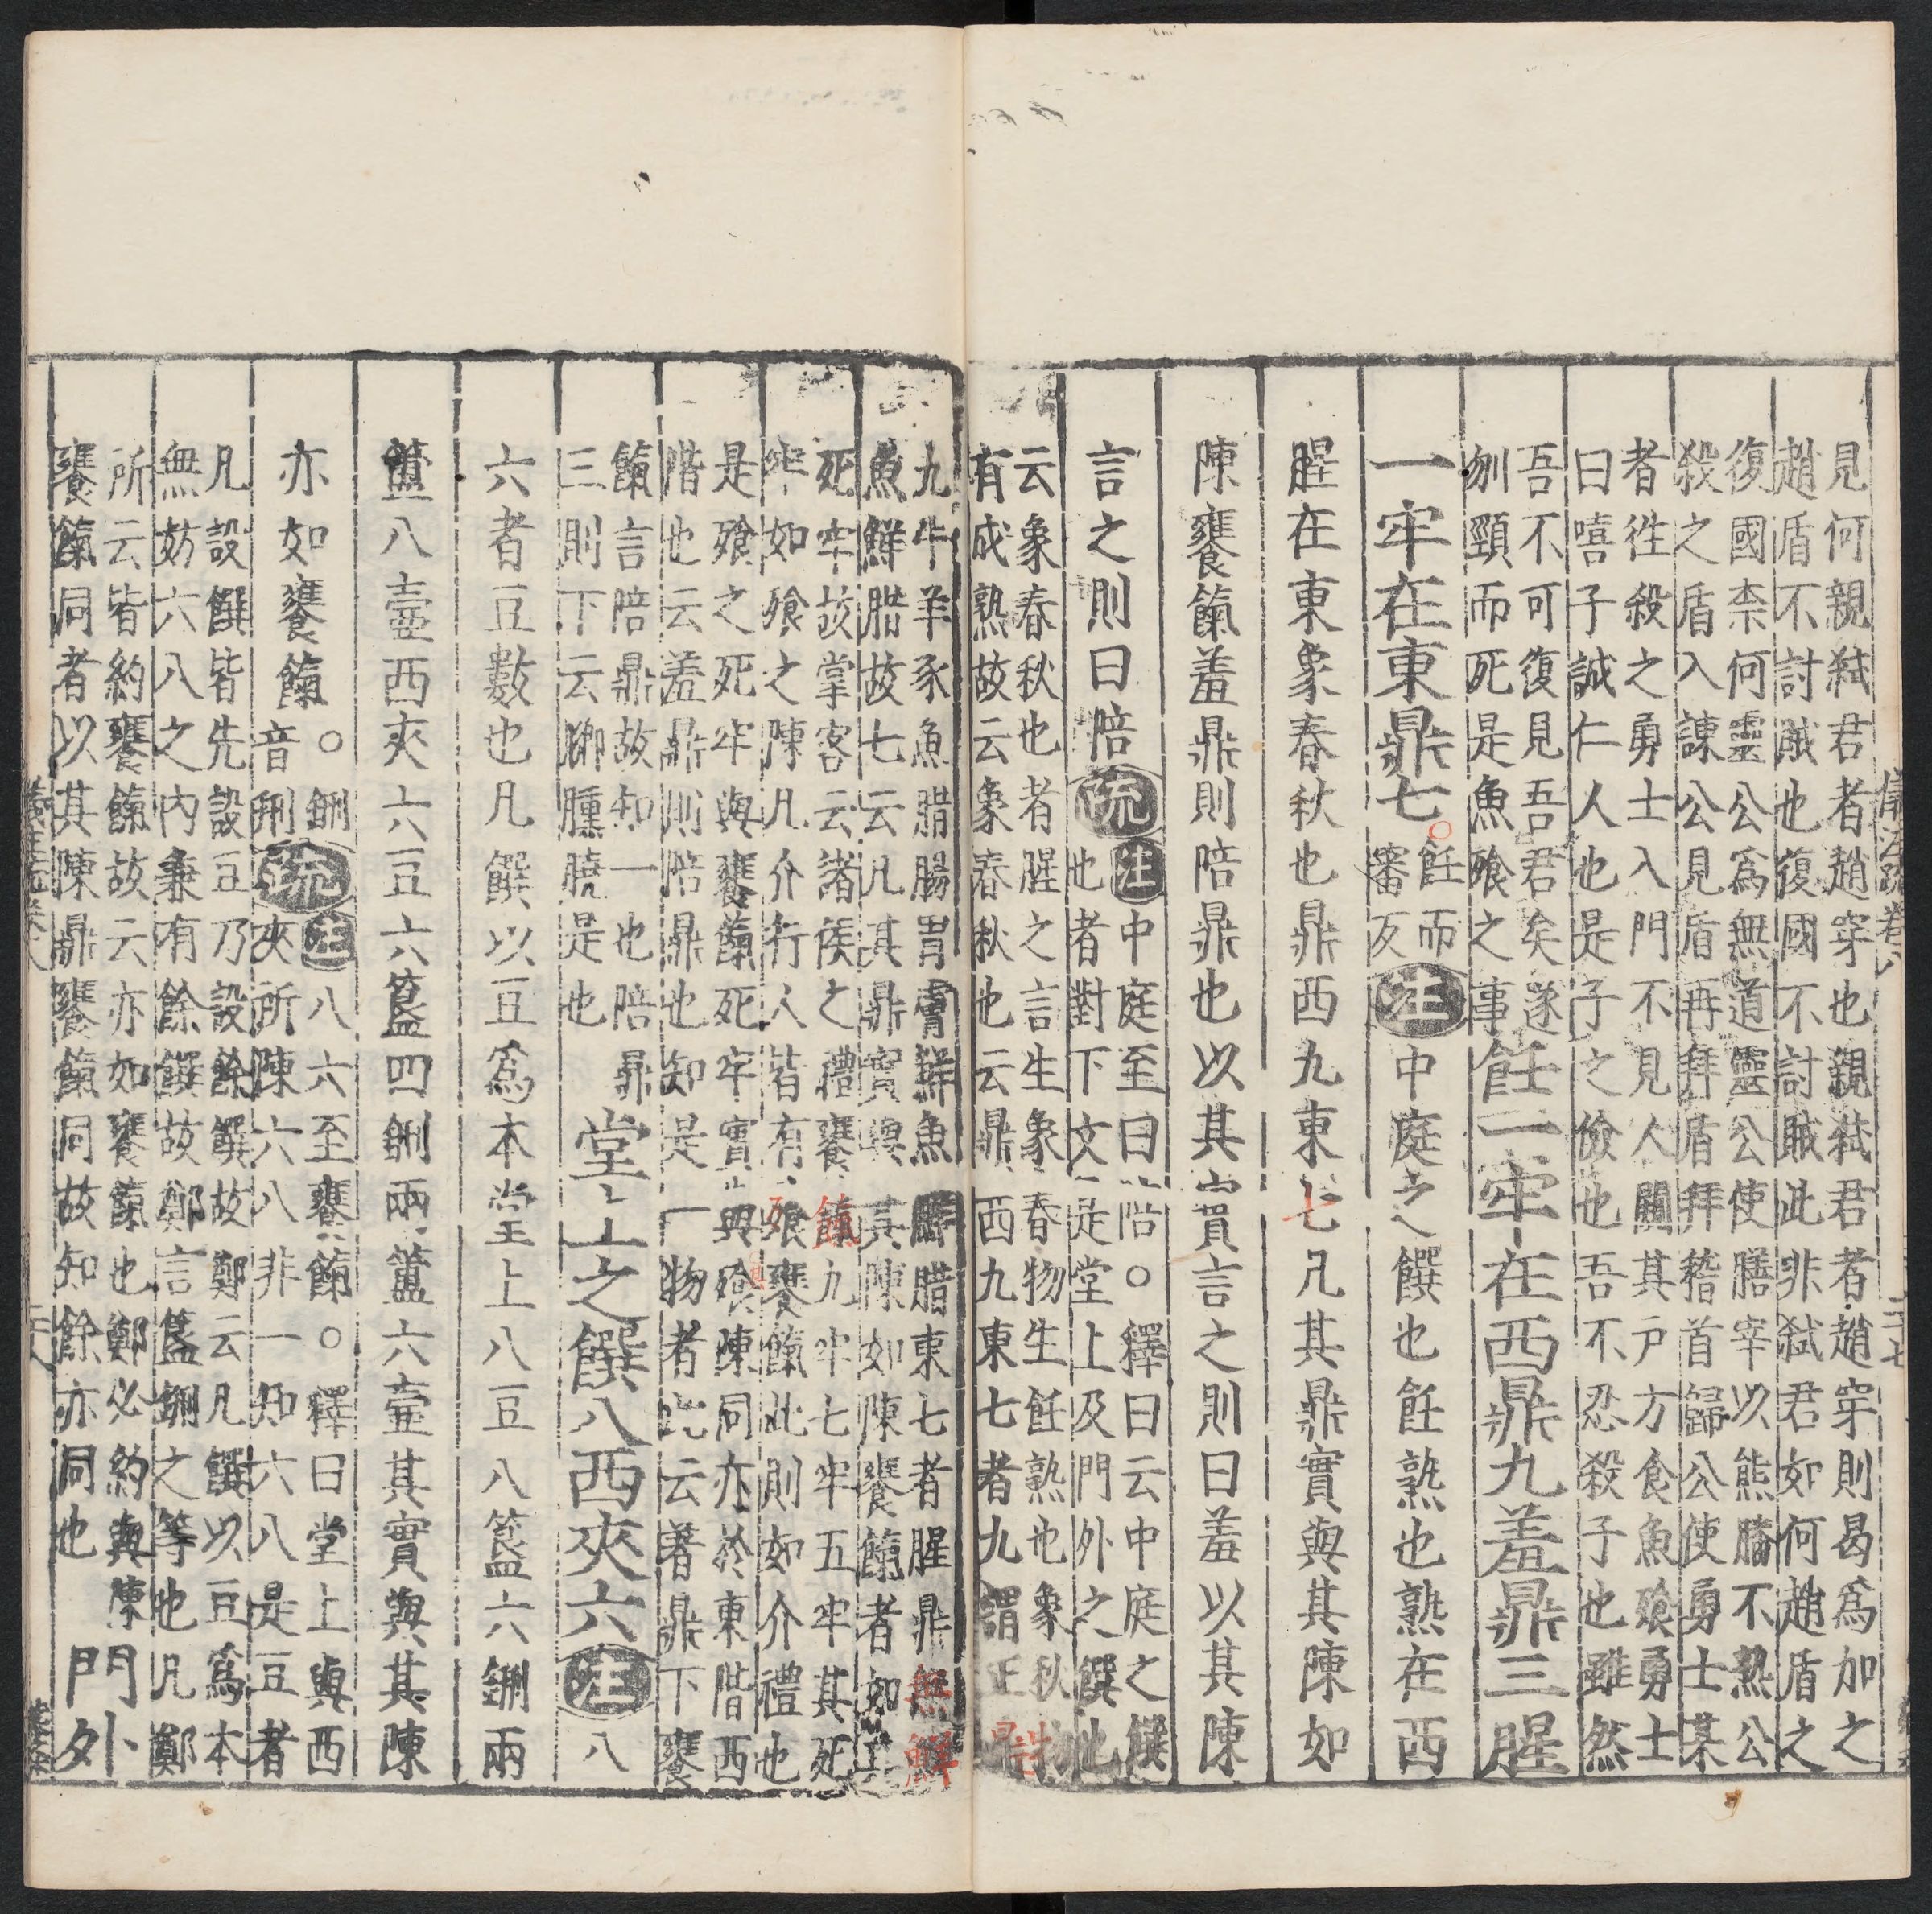 見何親弑君者趙穿也親弑君者趙穿則曷爲加之
趙盾不討賊也復國不討賊此非弑君如何趙盾之
復國柰何靈公爲無道靈公使膳宰以熊膰不熟公
殺之盾入諫公見盾再拜盾拜稽首歸公使勇士某
者往殺之勇士入門不見人闚其戶方食魚飱勇士
曰嘻子誠仁人也是子之儉也吾不忍殺子也雖然
吾不可復見吾君矣遂
刎頸而死是魚飱之事
飪一牢在西鼎九羞鼎三腥
一牢在東鼎七
○飪而
審反
注中庭之饌也飪熟也熟在西
腥在東象春秋也鼎西九東七凡其鼎實與其陳如
陳饔餼羞鼎則陪鼎也以其實言之則曰羞以其陳
言之則曰陪
疏注中庭至曰陪○釋曰云中庭之饌
也者對下文是堂上及門外之饌也
云象春秋也者腥之言生象春物生飪熟也象秋物
有成熟故云象春秋也云鼎西九東七者九謂正鼎
九牛羊豕魚腊腸胃膚鮮魚鮮腊東七者腥鼎無鮮
魚鮮腊故七云凡其鼎實與其陳如陳饔餼者如其
死牢故掌客云諸侯之禮饔餼九牢七牢五牢其死
牢如飱之陳凡介行人皆有飱饔餼此則如介禮也
是飱之死牢與饔餼死牢實與飱陳同亦於東階西
階也云羞鼎則陪鼎也知是一物者此云羞鼎下饔
餼言陪鼎故知一也陪鼎
三則下云膷臐膮是也
堂上之饌八西夾六
注八
六者豆數也凡饌以豆爲本堂上八豆八簋六鉶兩
簠八壺西夾六豆六簋四鉶兩簠六壺其實與其陳
亦如饔餼
○鉶
音刑
疏注八六至饔餼○釋曰堂上與西
夾所陳六八非一知六八是豆者
凡設饌皆先設豆乃設餘饌故鄭云凡饌以豆爲本
無妨六八之內兼有餘饌故鄭言簋鉶之等也凡鄭
所云皆約饔餼故云亦如饔餼也鄭必約與陳
饔餼同者以其陳鼎饔餼同故知餘亦同也
門外